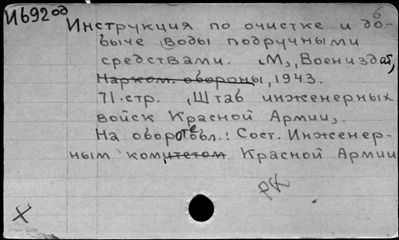 И692од
Инструкция по очистке и до-
быче воды подручными
средствами. М., Воениздат,
Нарком. обороны, 1943.
71 стр. (Штаб инженерных
войск Красной Армии).
На обороте обл.: Сост. Инженер-
ным комитетом Красной Армии